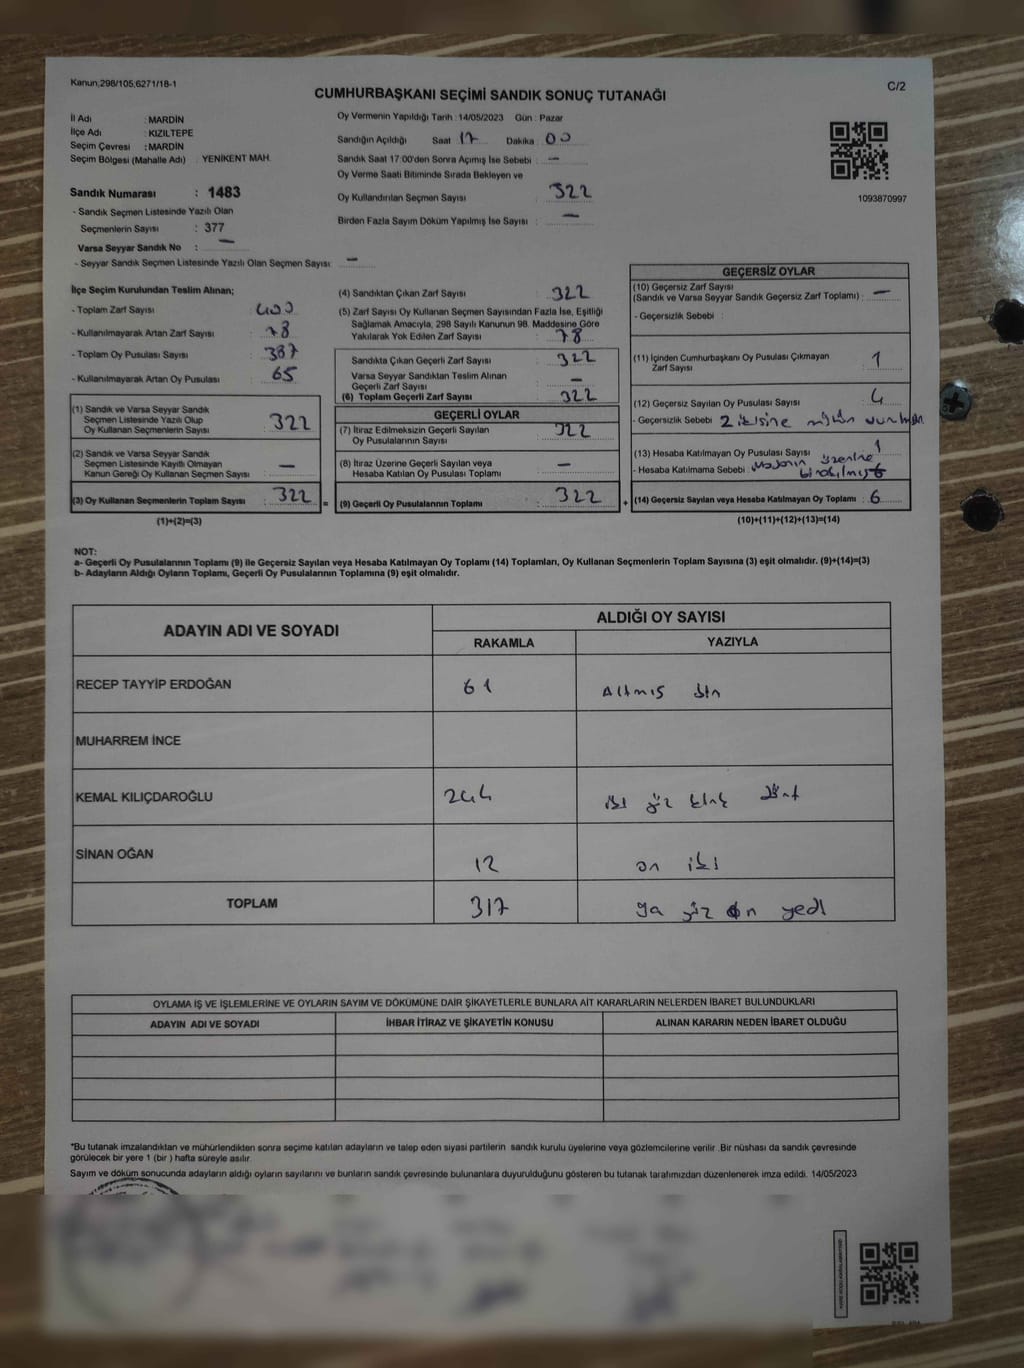 Kanun,298/105,6271/18-1
C/2
CUMHURBAŞKANI SEÇİMİ SANDIK SONUÇ TUTANAĞI
İl Adı : MARDİN
İlçe Adı : KIZILTEPE
Seçim Çevresi : MARDİN
Seçim Bölgesi (Mahalle Adı) : YENİKENT MAH.
Sandık Numarası : 1483
- Sandık Seçmen Listesinde Yazılı Olan
Seçmenlerin Sayısı : 377
Varsa Seyyar Sandık No : -
- Seyyar Sandık Seçmen Listesinde Yazılı Olan Seçmen Sayısı: -
Oy Vermenin Yapıldığı Tarih : 14/05/2023 Gün : Pazar
Sandığın Açıldığı Saat 17 Dakika : 00
Sandık Saat 17:00'den Sonra Açımış İse Sebebi : -
Oy Verme Saati Bitiminde Sırada Bekleyen ve
Oy Kullandırılan Seçmen Sayısı : 322
Birden Fazla Sayım Döküm Yapılmış İse Sayısı : -
1093870997
İlçe Seçim Kurulundan Teslim Alınan;
- Toplam Zarf Sayısı : 400
- Kullanılmayarak Artan Zarf Sayısı : 78
- Toplam Oy Pusulası Sayısı : 387
- Kullanılmayarak Artan Oy Pusulası : 65
(1) Sandık ve Varsa Seyyar Sandık
Seçmen Listesinde Yazılı Olup
Oy Kullanan Seçmenlerin Sayısı : 322
(2) Sandık ve Varsa Seyyar Sandık
Seçmen Listesinde Kayıtlı Olmayan
Kanun Gereği Oy Kullanan Seçmen Sayısı : -
(3) Oy Kullanan Seçmenlerin Toplam Sayısı : 322 =
(1)+(2)=(3)
(4) Sandıktan Çıkan Zarf Sayısı : 322
(5) Zarf Sayısı Oy Kullanan Seçmen Sayısından Fazla İse, Eşitliği
Sağlamak Amacıyla, 298 Sayılı Kanunun 98. Maddesine Göre
Yakılarak Yok Edilen Zarf Sayısı : 78
Sandıkta Çıkan Geçerli Zarf Sayısı : 322
Varsa Seyyar Sandıktan Teslim Alınan
Geçerli Zarf Sayısı : -
(6) Toplam Geçerli Zarf Sayısı : 322
GEÇERLİ OYLAR
(7) İtiraz Edilmeksizin Geçerli Sayılan
Oy Pusulalarının Sayısı : 322
(8) İtiraz Üzerine Geçerli Sayılan veya
Hesaba Katılan Oy Pusulası Toplamı : -
(9) Geçerli Oy Pusulalarının Toplamı : 322 +
GEÇERSİZ OYLAR
(10) Geçersiz Zarf Sayısı
(Sandık ve Varsa Seyyar Sandık Geçersiz Zarf Toplamı) : -
- Geçersizlik Sebebi :
(11) İçinden Cumhurbaşkanı Oy Pusulası Çıkmayan
Zarf Sayısı : 1
(12) Geçersiz Sayılan Oy Pusulası Sayısı : 4
- Geçersizlik Sebebi 2 ikisine mühür
(13) Hesaba Katılmayan Oy Pusulası Sayısı : 1
- Hesaba Katılmama Sebebi : Masanın üzerine
bırakılmış
(14) Geçersiz Sayılan veya Hesaba Katılmayan Oy Toplamı : 6
(10)+(11)+(12)+(13)=(14)
NOT:
a- Geçerli Oy Pusulalarının Toplamı (9) ile Geçersiz Sayılan veya Hesaba Katılmayan Oy Toplamı (14) Toplamları, Oy Kullanan Seçmenlerin Toplam Sayısına (3) eşit olmalıdır. (9)+(14)=(3)
b- Adayların Aldığı Oyların Toplamı, Geçerli Oy Pusulalarının Toplamına (9) eşit olmalıdır.
ADAYIN ADI VE SOYADI
ALDIĞI OY SAYISI
RAKAMLA YAZIYLA
RECEP TAYYİP ERDOĞAN 61 Altmış bir
MUHARREM İNCE
KEMAL KILIÇDAROĞLU 244 iki yüz kırk dört
SİNAN OĞAN 12 on iki
TOPLAM 317 yüz on yedi
OYLAMA İŞ VE İŞLEMLERİNE VE OYLARIN SAYIM VE DÖKÜMÜNE DAİR ŞİKAYETLERLE BUNLARA AİT KARARLARIN NELERDEN İBARET BULUNDUKLARI
ADAYIN ADI VE SOYADI İHBAR İTİRAZ VE ŞİKAYETİN KONUSU ALINAN KARARIN NEDEN İBARET OLDUĞU
*Bu tutanak imzalandıktan ve mühürlendikten sonra seçime katılan adayların ve talep eden siyasi partilerin sandık kurulu üyelerine veya gözlemcilerine verilir. Bir nüshası da sandık çevresinde
görülecek bir yere 1 (bir ) hafta süreyle asılır.
Sayım ve döküm sonucunda adayların aldığı oyların sayılarını ve bunların sandık çevresinde bulunanlara duyurulduğunu gösteren bu tutanak tarafımızdan düzenlenerek imza edildi. 14/05/2023